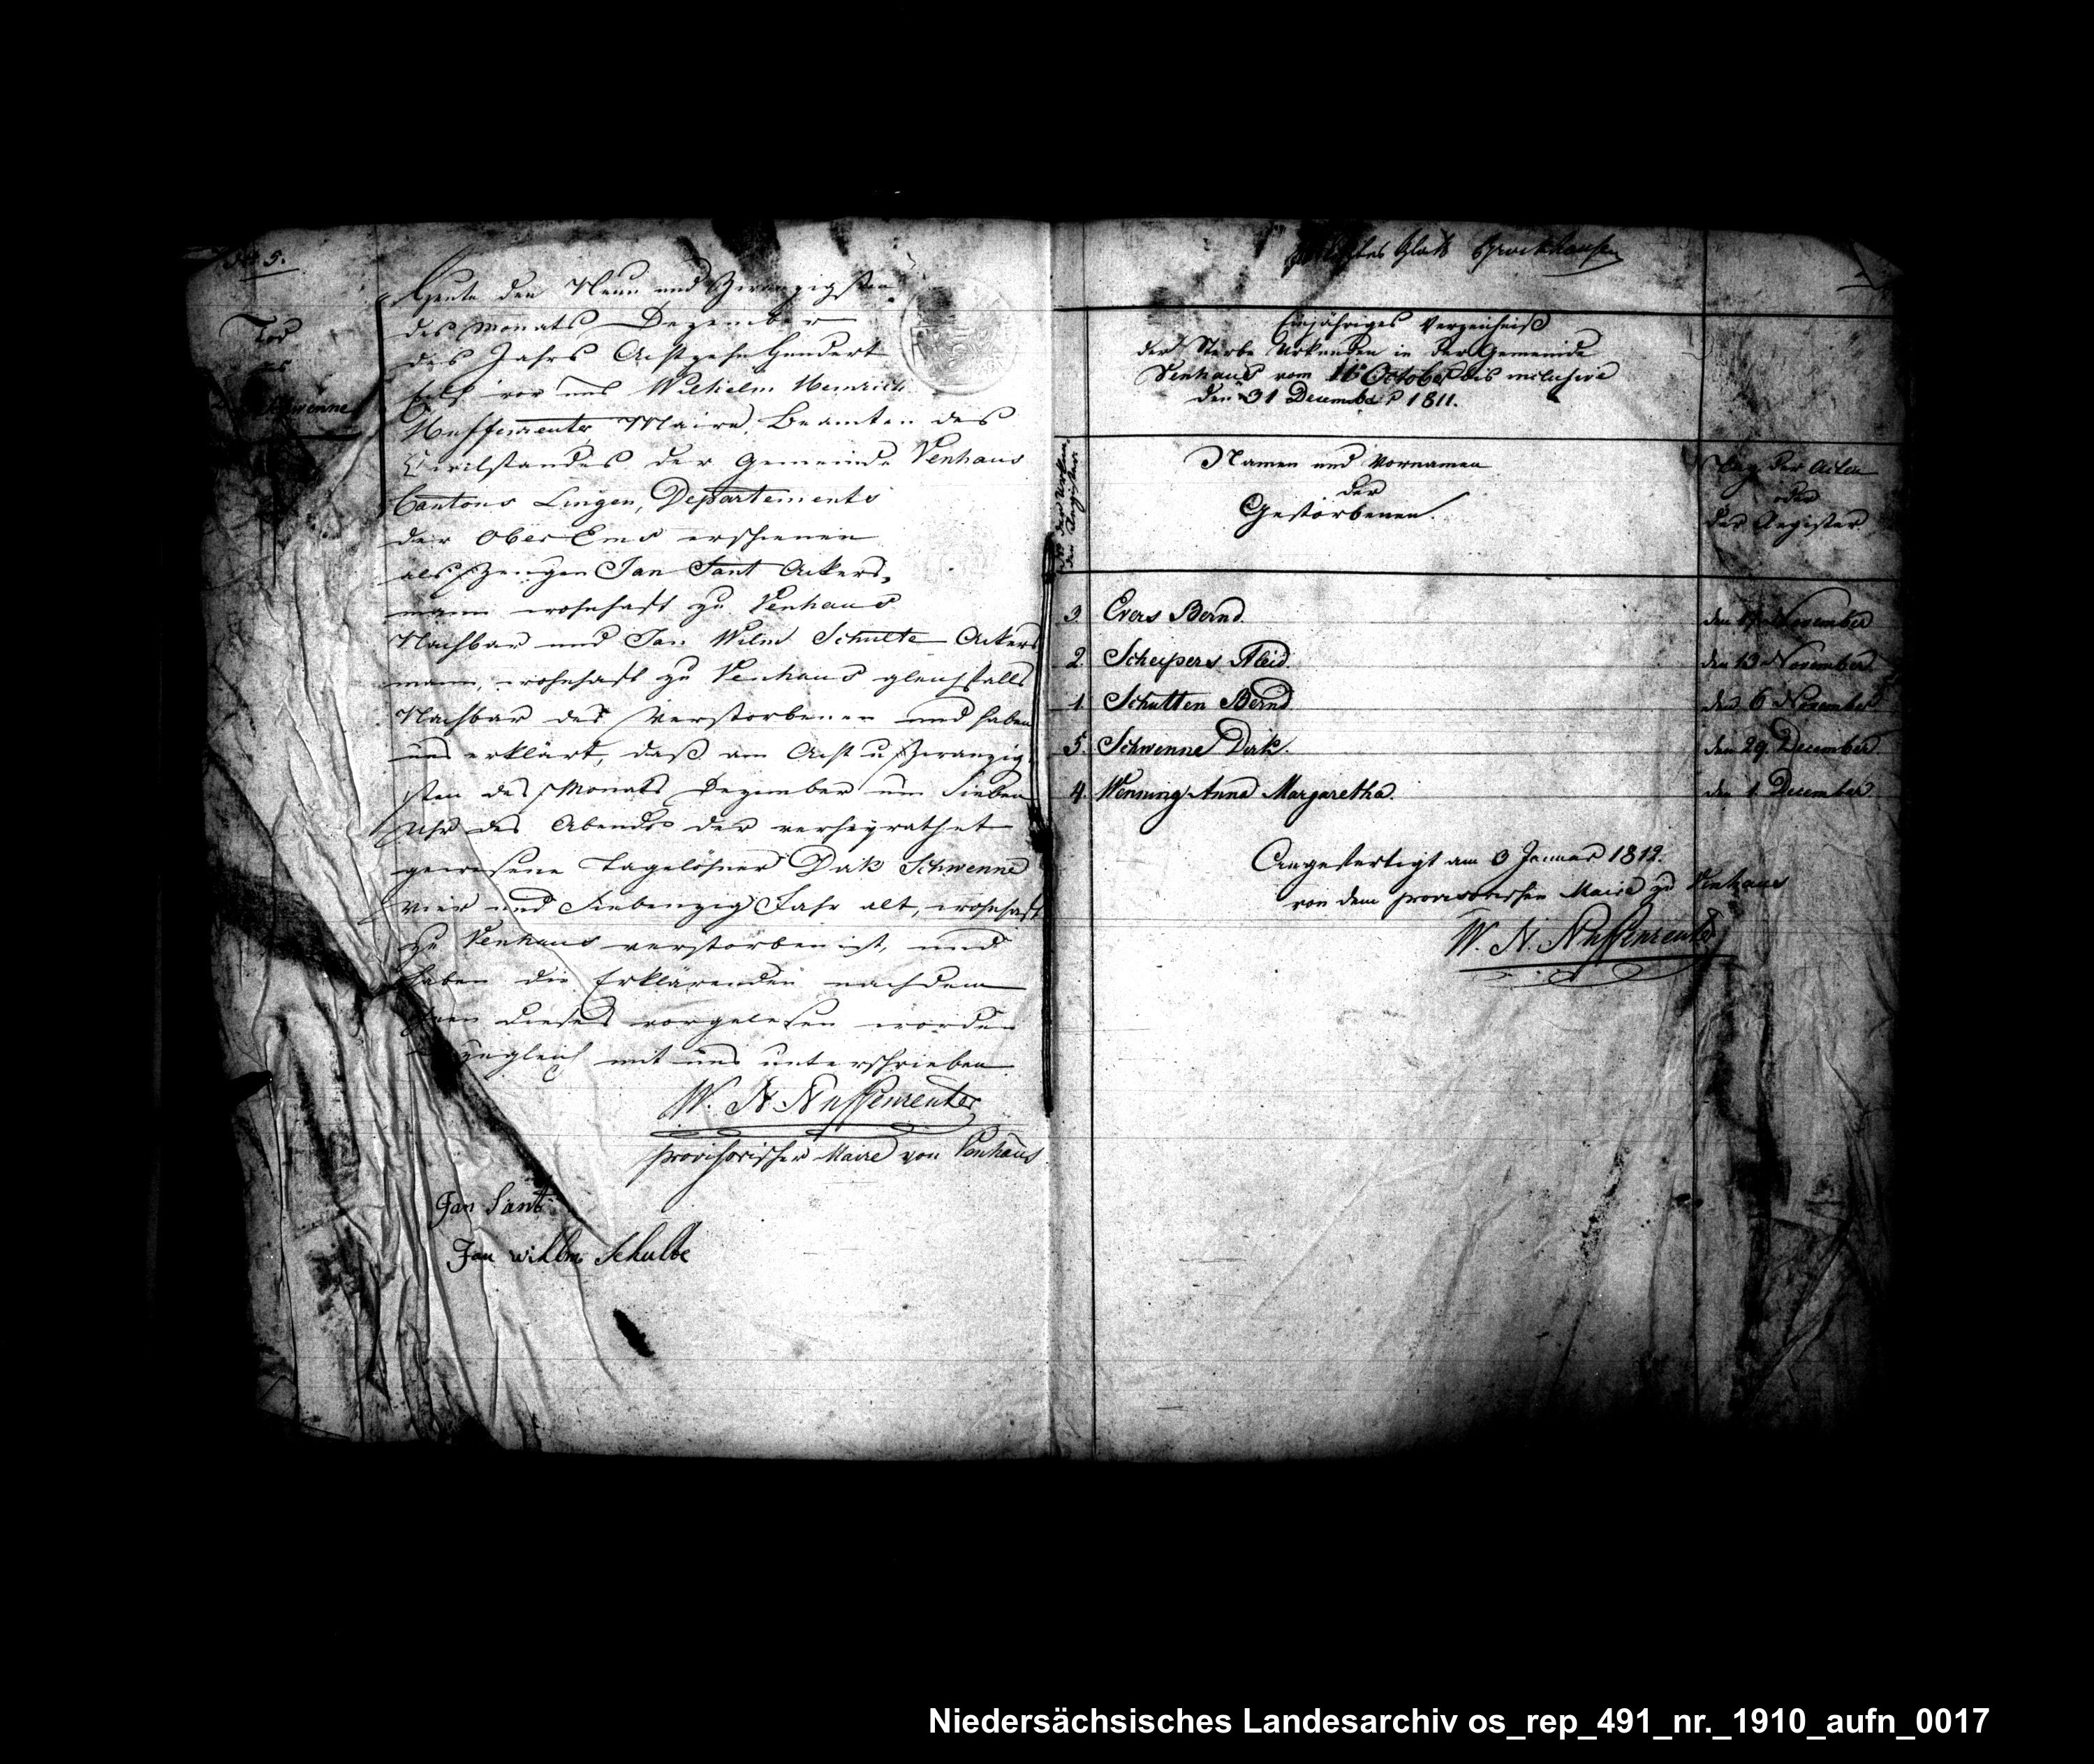 No 5.
Tod
des
Schwenne
Heute den Neun und Zwanzigsten
des Monats Dezember
des Jahrs Achtzehn Hundert
vor uns Wilhelm Heinrich
Maire, Beamten des
Civilstandes der Gemeinde Venhaus
Cantons Lingen, Departements
der Ober Ems erschienen
als Zeugen Jan Sant Ackers,
mann wohnhaft zu Venhaus
Nachbar und Jan Wilm Schulte Ackers
mann, wohnhaft zu Venhaus gleichfalls
Nachbar des Verstorbenen und haben
uns erklärt, daß am Acht u Zwanzig
sten des Monats Dezember um Sieben
Uhr des Abends der verheyrathet
gewesene Tagelöhner Dirk Schwenne
vier und Siebenzig Jahr alt, wohnhaft
zu Venhaus verstorben ist, und
haben die Erklärenden nachdem
ihnen dieses vorgelesen worden
zugleich mit uns unterschrieben
W. H. Nuffenreuter
provisorischer Maire von Venhaus
Jan Sant
Jan wihlm Schulte
letztes Blatt
Einjähriges Verzeichniß
der Sterbe Urkunden in der Gemeinde
Venhaus vom October bis inclusive
den 31 December 1811.
der Urkunden
der Register
Namen und Vornamen
der
Gestorbenen.
Tag der Acten
oder
der Register
3. Evers Bernd. den November
2. Scheipers Aleid. den 13 November
1. Schutten Bernd. den 6 November
5. Schwenne Dirk. den 29. December
4. Wenning Anna Margaretha. den 1. December
Angefertigt am 3 Januar 1812.
von dem provisorischen Maire zu Venhaus
W. H. Nuffenreuter
Niedersächsisches Landesarchiv os_rep_491_nr._1910_aufn_0017